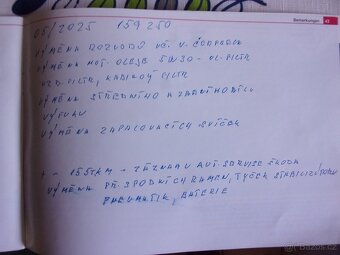 Bemerkungen 43
05/2025 159 250
VÝMĚNA ROZVODŮ VČ. V. ČERPADLA
VÝMĚNA MOT. OLEJE 5W30 - OL. FILTR
VZD. FILTR, KABINOVÝ FILTR
VÝMĚNA STŘEDNÍHO A ZADNÍHO DÍLU
VÝFUKU
VÝMĚNA ZAPALOVACÍCH SVÍČEK
155TKM - ZÁZNAM AUT. SERVISU ŠKODA
VÝMĚNA PŘ. SPODNÍCH RAMEN, TYČEK STABILIZÁTORU
PNEUMATIK, BATERIE